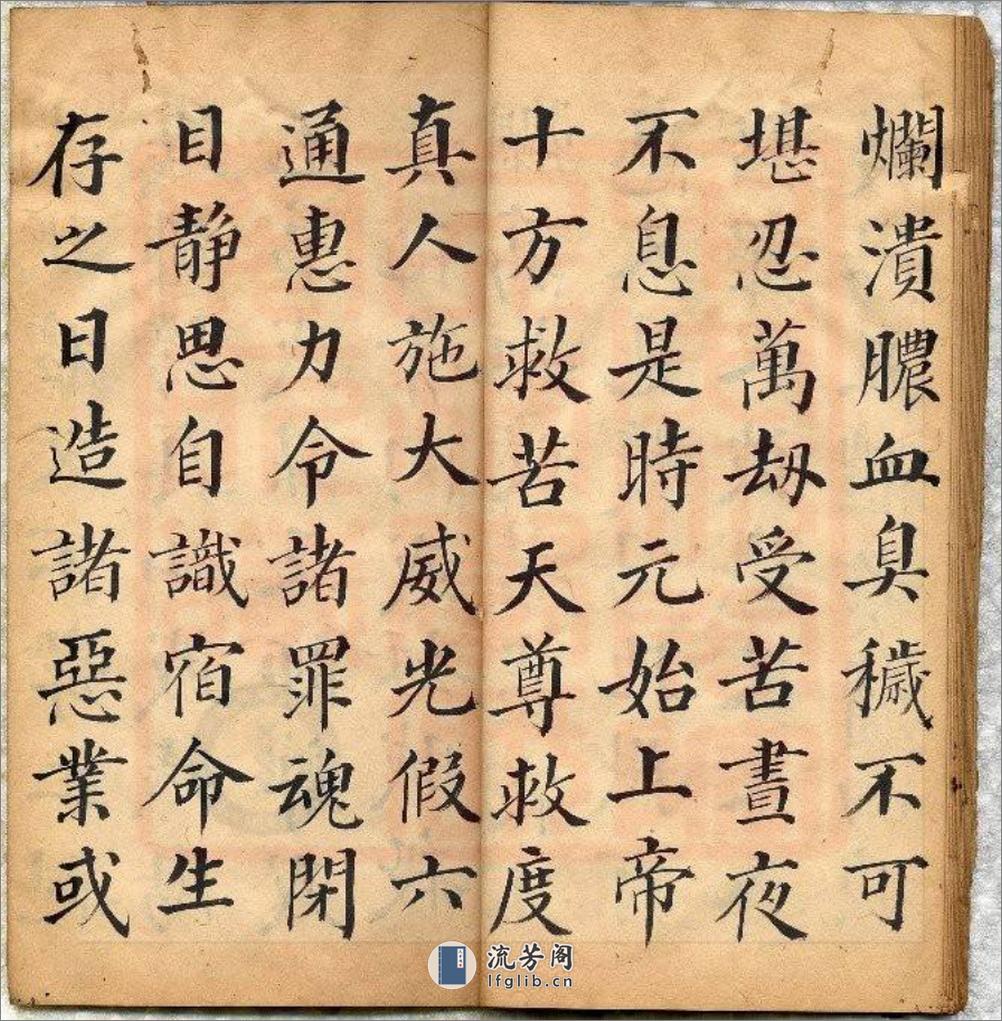 爛潰膿血臭穢不可
堪忍萬劫受苦晝夜
不息是時元始上帝
十方救苦天尊救度
真人施大威光假六
通惠力令諸罪魂閉
目靜思自識宿命生
存之日造諸惡業或
流芳阁
lfglib.cn